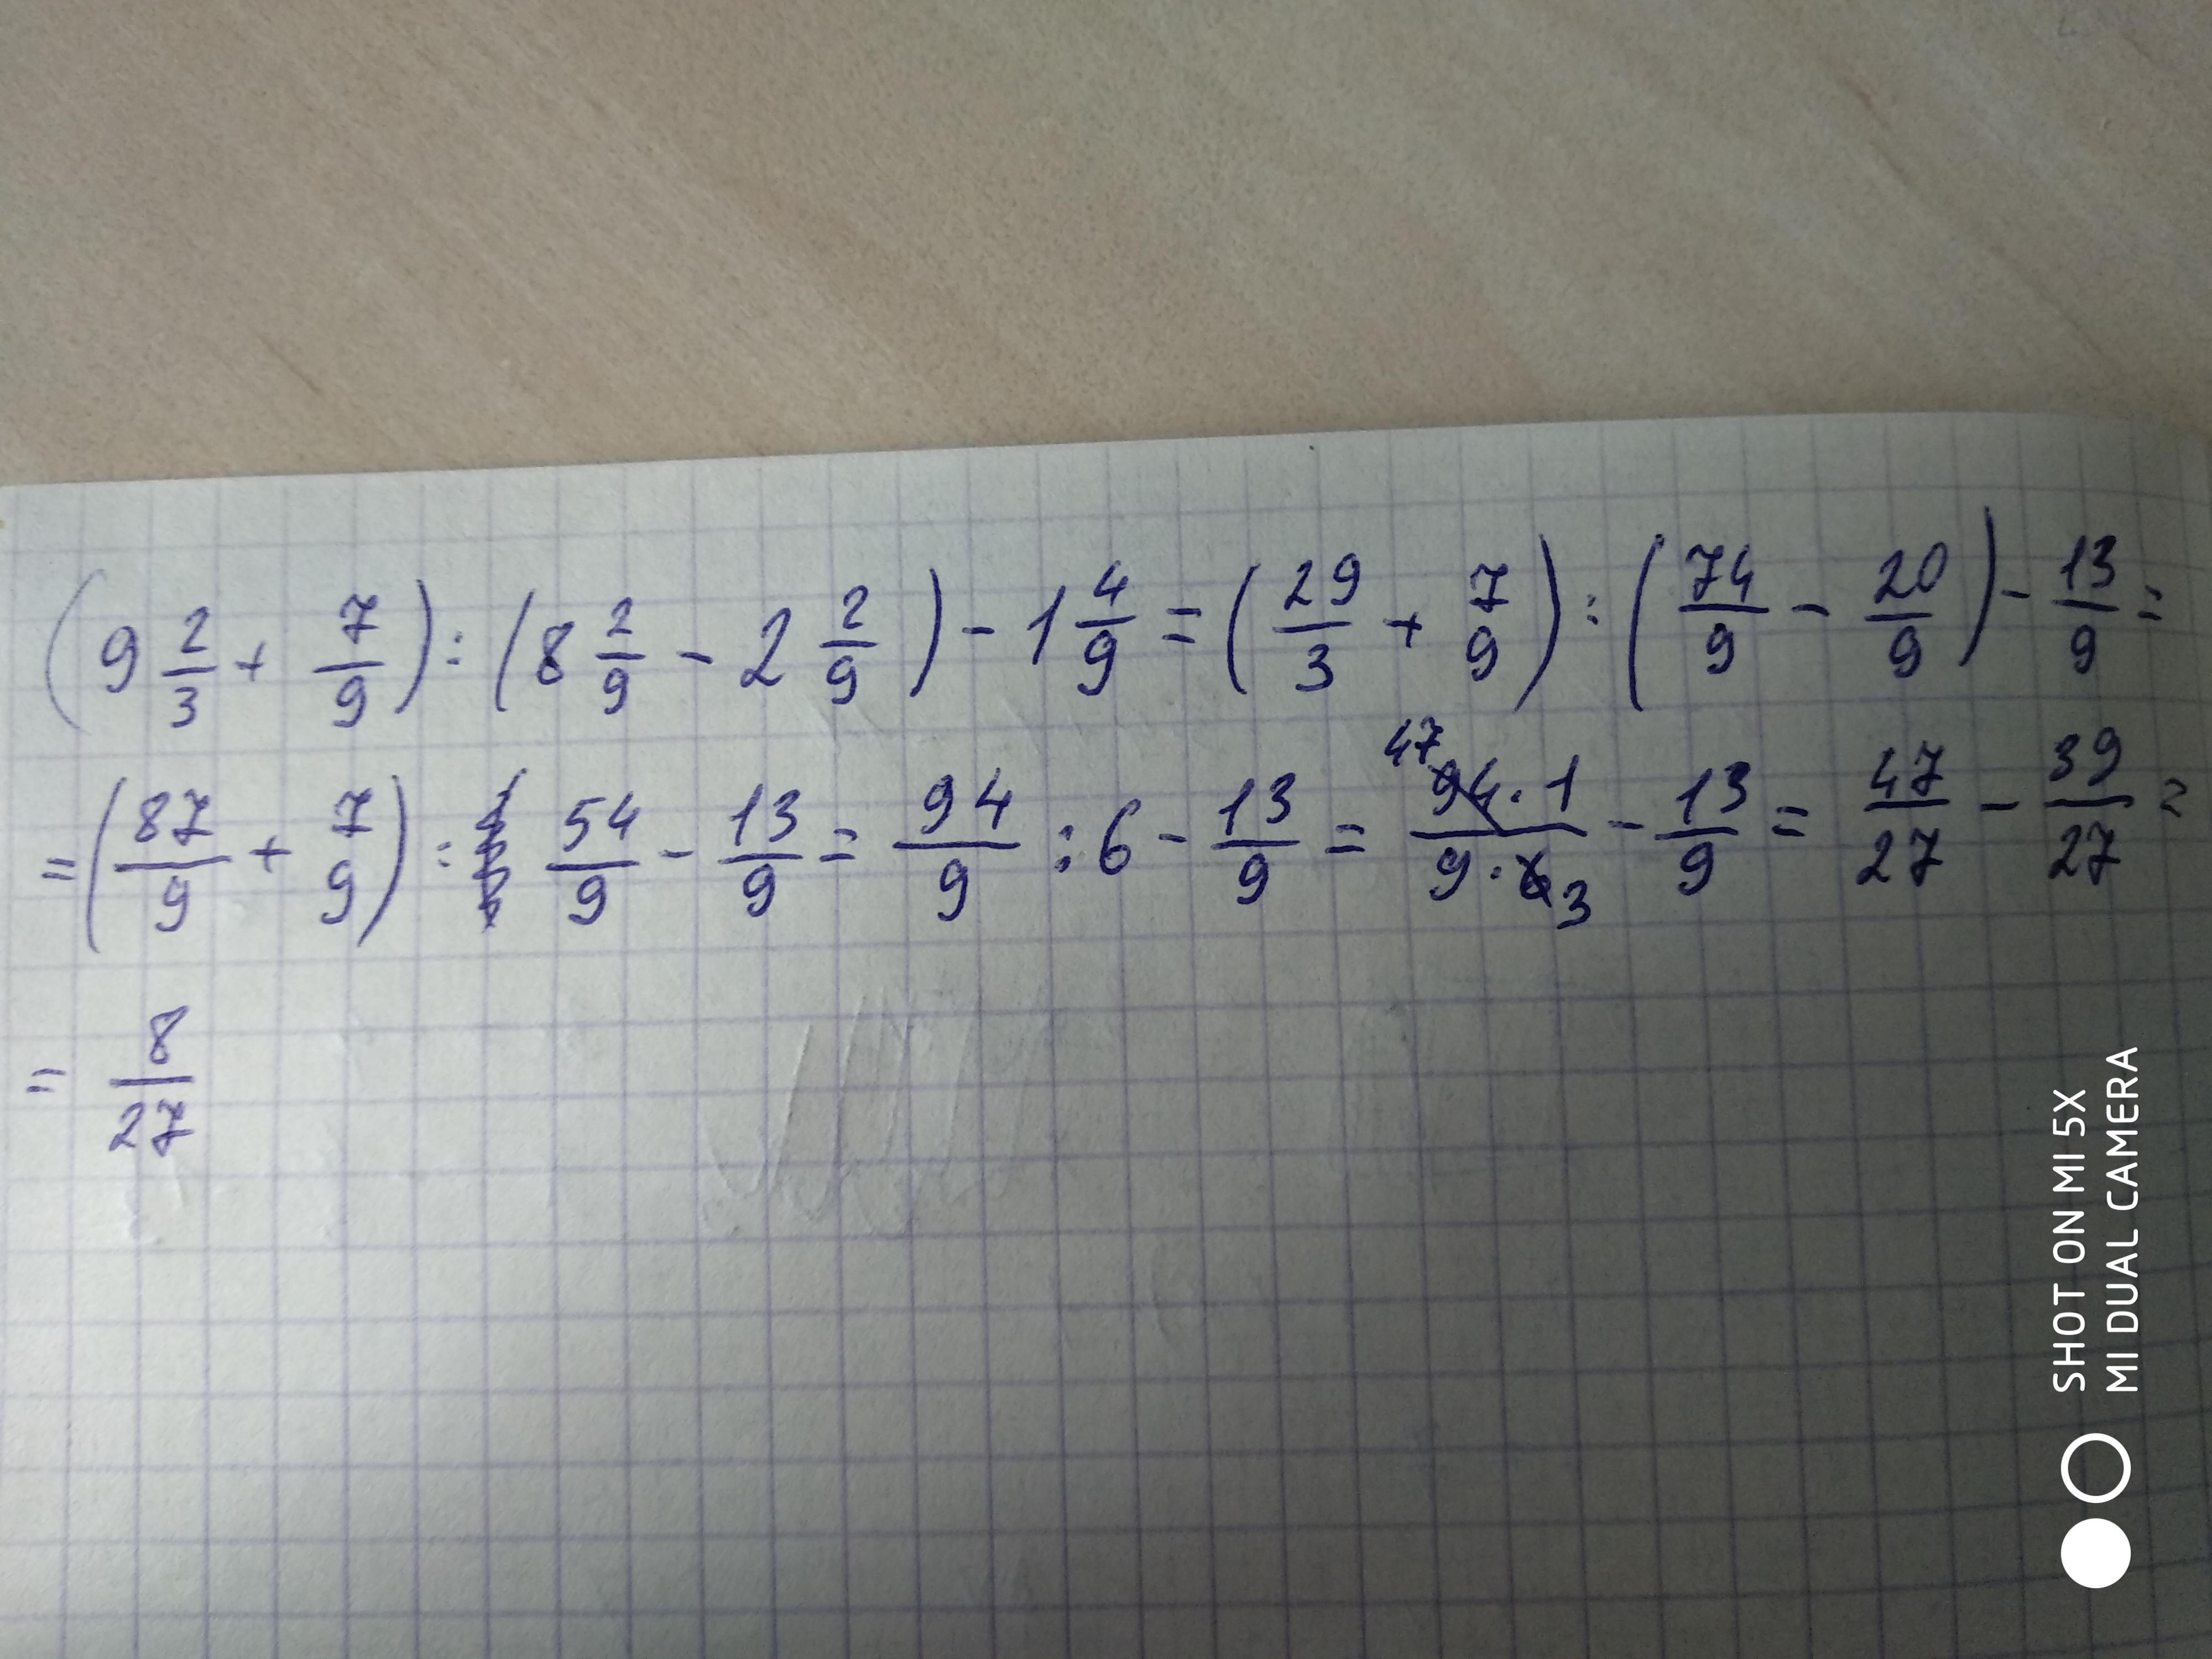 (9 2/3 + 7/9) : (8 2/9 - 2 2/9) - 1 4/9 = (29/3 + 7/9) : (74/9 - 20/9) - 13/9 =
= (87/9 + 7/9) : 54/9 - 13/9 = 94/9 : 6 - 13/9 = 47 94·1/9·6 3 - 13/9 = 47/27 - 39/27 =
= 8/27
SHOT ON MI 5X
MI DUAL CAMERA